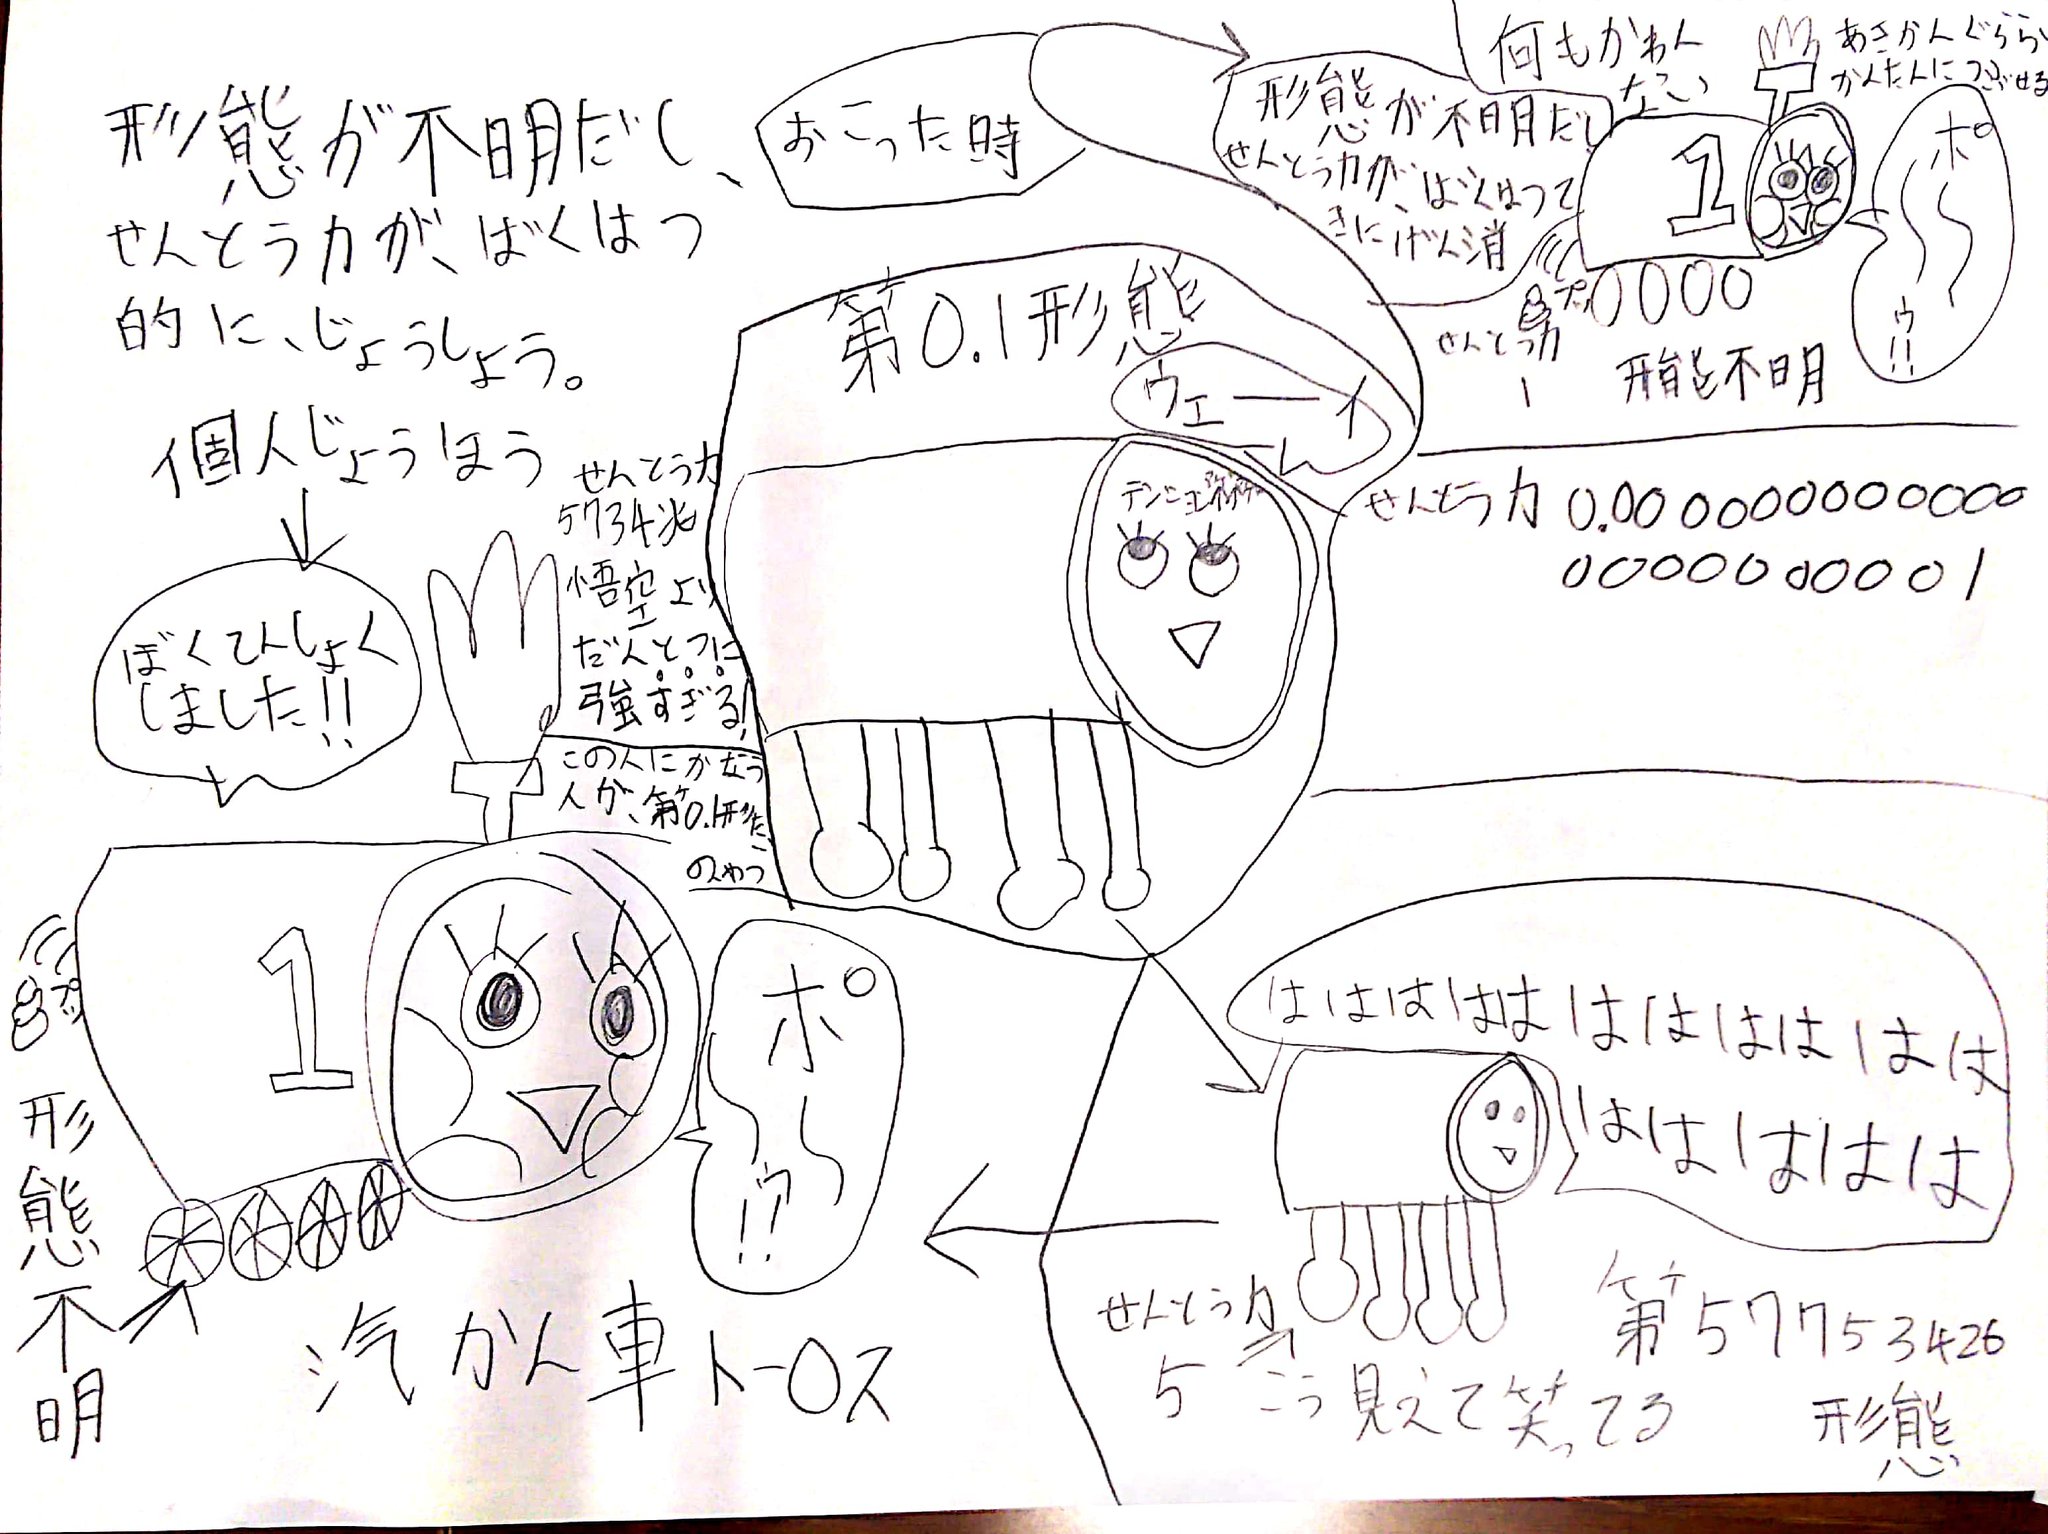 形態が不明だし、
せんとう力が、ばくはつ
的に、じょうしょう。
個人じょうほう
ぼくてんしょく
しました!!
せんとう力
5734兆
悟空より
だんとつに
強すぎる!
この人にかなう
人が、第0.1形たい
のやつ
1
プッ
形態不明
ポ〜〜ウ!!
汽かん車トーロス
おこった時
第0.1形態
ウェーーイ
形態が不明だし
せんとう力が、ばくはつて
きにげん消
何もかわん
ない
あきかんぐらい
かんたんにつぶせる
1
ポ〜〜ウ!!
プッ
せんとう力
1
形態不明
せんとう力 0.0000000000000
0000000001
ははははははははははは
はははははは
せんとう力
5
こう見えて笑ってる
第57753426
形態